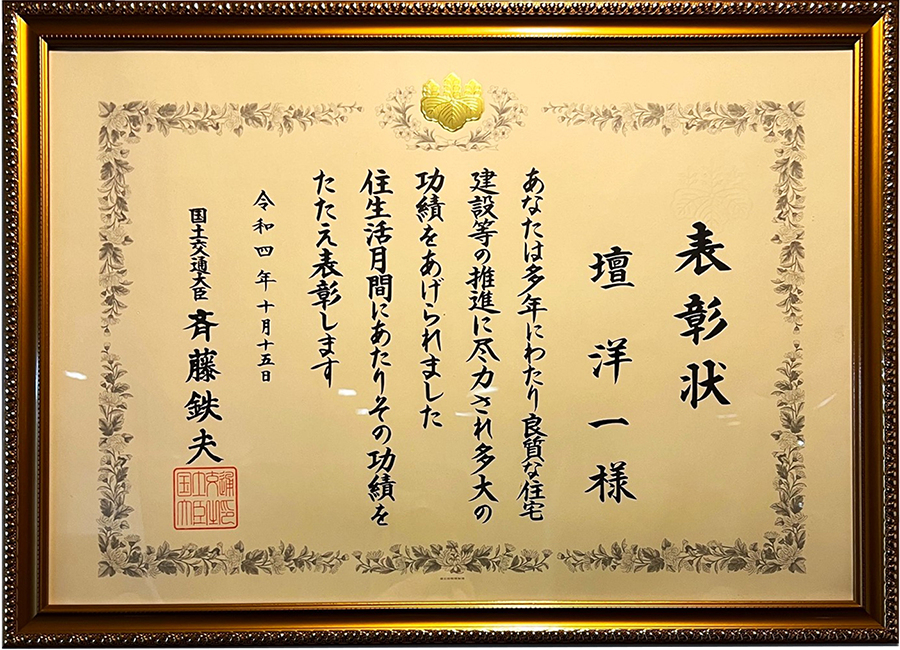 表彰状
壇洋一様
あなたは多年にわたり良質な住宅
建設等の推進に尽力され多大の
功績をあげられました
住生活月間にあたりその功績を
たたえ表彰します
令和四年十月十五日
国土交通大臣 斉藤鉄夫